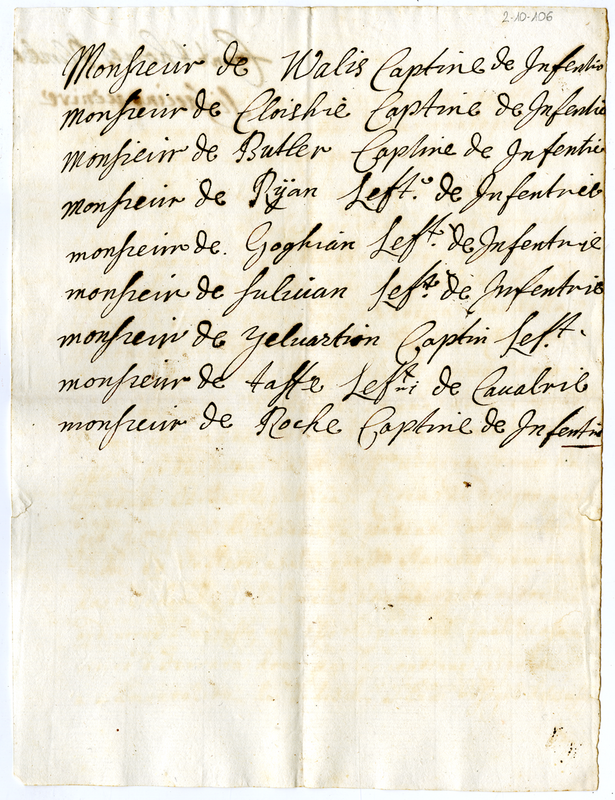 2-10-106
Monsieur de Walis Captine de Infentrie
monsieur de Cloishie Captine de Infentrie
monsieur de Butler Captine de Infentrie
monsieur de Rÿan Left.e de Infentrie
monsieur de Goghian Left.t de Infentrie
monsieur de sulivan Left.t de Infentrie
monsieur de yelvartion Captin Left.
monsieur de taffe Left. de Cavalrie
monsieur de Roche Captine de Infentrie